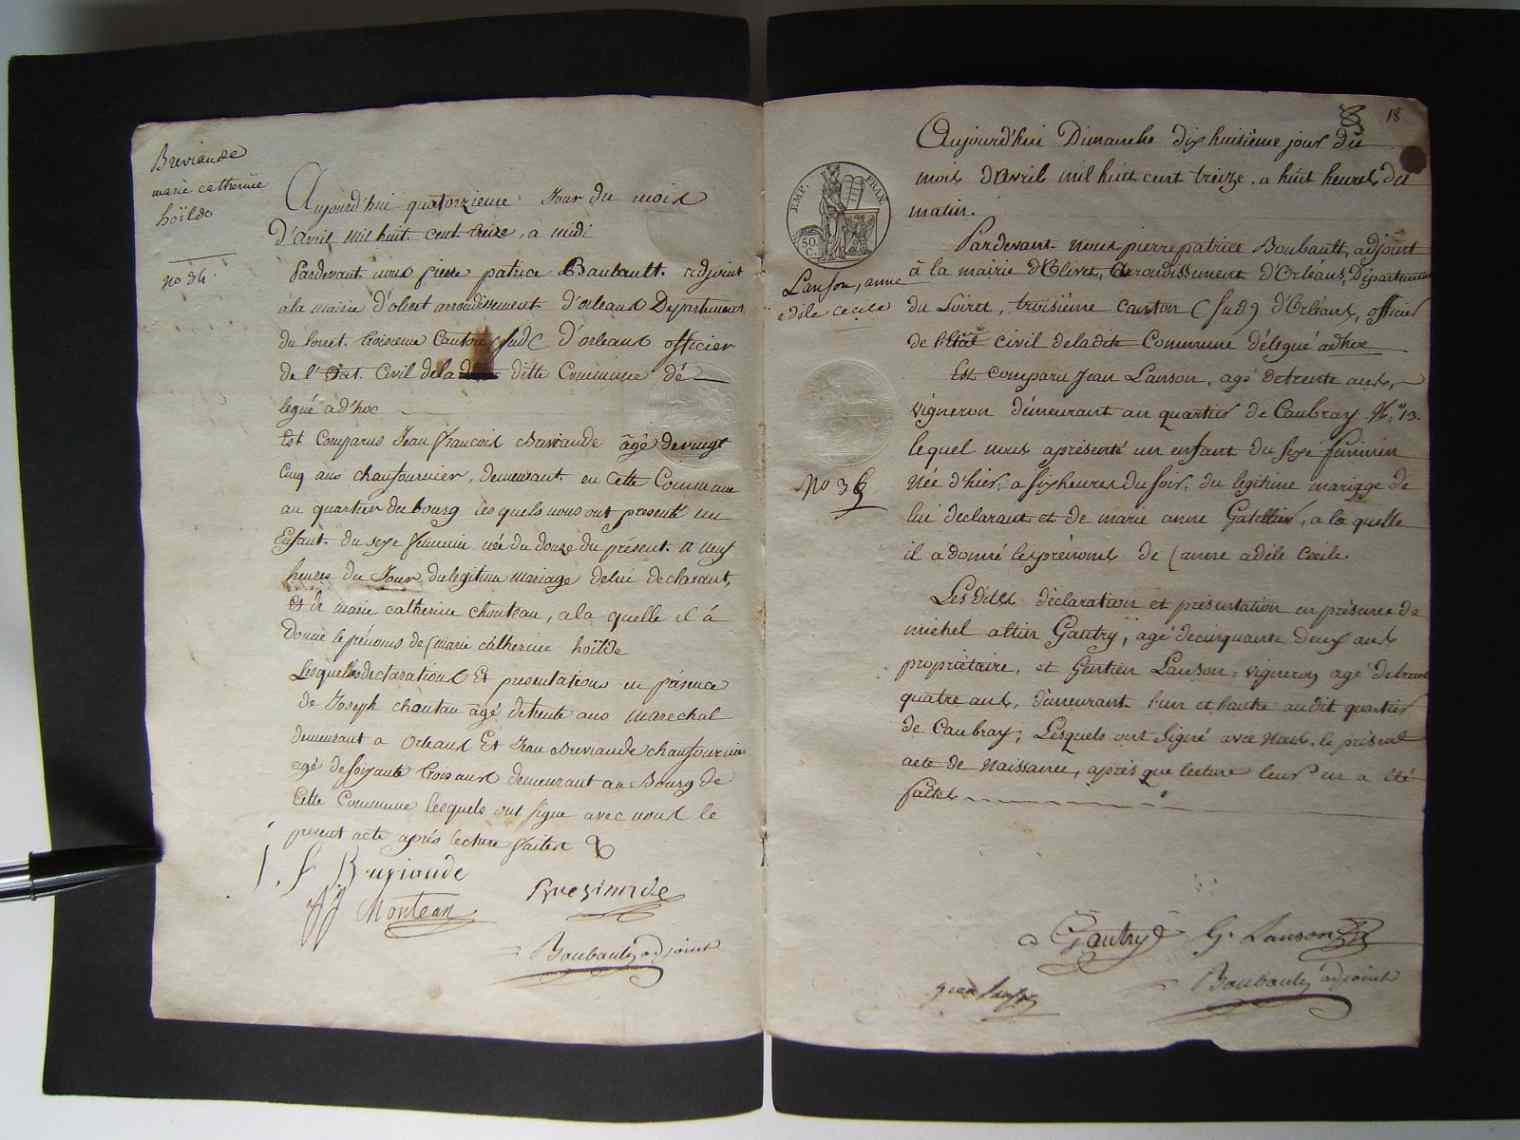 Breviande
marie catherine
hoïlde
No 34.
Aujourd'hui quatorzieme Jour du mois
D'avril mil huit cent treize, a midi
Pardevant nous pierre patrice Boubault. adjoint
a la mairie d'olivet arrondissement d'orleans Departement
du loiret. troisieme Canton (sud) d'orleans officier
de l'Etat. Civil de la ditte Commune dé
legué ad'hoc
Est Comparus Jean françois Breviande âgé de vingt
Cinq ans chaufournier, demeurant. en cette Commune
au quartier du bourg lesquels nous ont presenté un
Enfant. du sexe féminin née du douze du présent. a neuf
heures du Jour du legitime mariage de lui declarant,
et de marie catherine chouteau, a la quelle il á
donné le prenoms de (marie catherine hoïlde
Lesquelles declarations Et presentations en présence
de Joseph chouteau âgé de trente ans marechal
demeurant a Orleans Et Jean Breviande chaufournier
agé de soixante trois ans demeurant au Bourg de
Cette Commune lesquels ont signe avec nous le
present acte après lecture faites
J. f Breviande
Breviande
Boubault adjoint
18
Aujourd'hui Dimanche dix huitième jour du
mois d'Avril mil huit cent treize. a huit heures du
matin.
EMP. FRAN.
50.
C.
Lanson, anne
adéle cecile
No 35
Pardevant. nous pierre patrice Boubault, adjoint
à la mairie d'Olivet, arrondissement d'Orléans, Département
du Loiret, troisième canton (sud) d'Orléans, officier
de l'état civil de la dite Commune délégué ad hoc
Est comparu Jean Lanson, agé de trente ans,
vigneron démeurant au quartier de Caubray N.º 13.
lequel nous a présenté un enfant du sexe féminin
née d'hier, a six heures du soir, du légitime mariage de
lui declarant et de marie anne Gatellier, a la quelle
il a donné les prénoms de (anne adèle cecile.
Les dites déclaration et présentation en présence de
michel altin Gautry, agé de cinquante deux ans
propriétaire, et Gentien Lanson, vigneron agé de trente
quatre ans, démeurant l'un et l'autre au dit quartier
de Caubray; Lesquels ont signé avec nous, le présent
acte de naissance, après que lecture leur en a été
faite
Gautry G. Lanson
jean lanson
Boubault adjoint